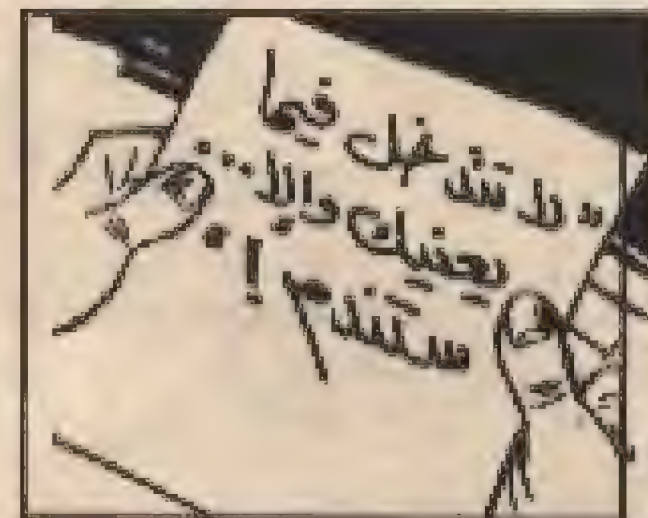 لا تتدخل فيما
لا يعنيك وإلا ..
ستندم !